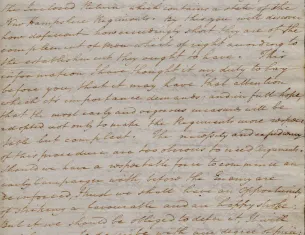 the inclosed Return which contains a state of the
New Hampshire Regiments. By this you will discover
how deficient how exceedingly short they are of the
complement of men which of right according to
the establishment they ought to have. This
information I have thought it my duty to lay
before you, that it may have that attention
which its importance demands and in full hope
that the most early and vigorous measures will be
adopted not only to make the Regiments more respec-
table but compleat. The necessity and expediency
of this procedure are too obvious to need arguments.
Should we have a respectable force to commence an
early campaign with before the Enemy are
reinforced, I trust we shall have an Opportunity
of striking a favourable and an happy stroke
But if we should be obliged to defer it
with any